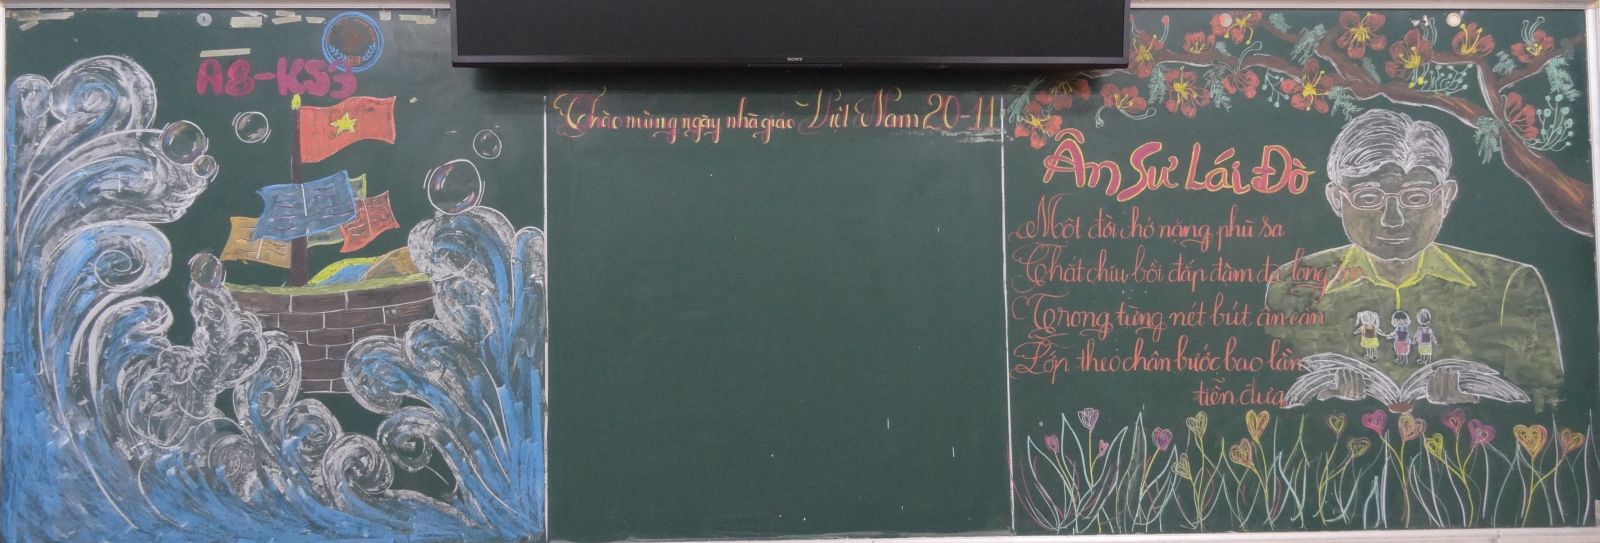 A8-K53
SONY
Chào mừng ngày nhà giáo Việt Nam 20-11
Ân Sư Lái Đò
Một đời chở nặng phù sa
Chát chiu bồi đắp đàm đa lòng
Trong từng nét bút ân cần
Lớp theo chân bước bao lần
tiễn đưa